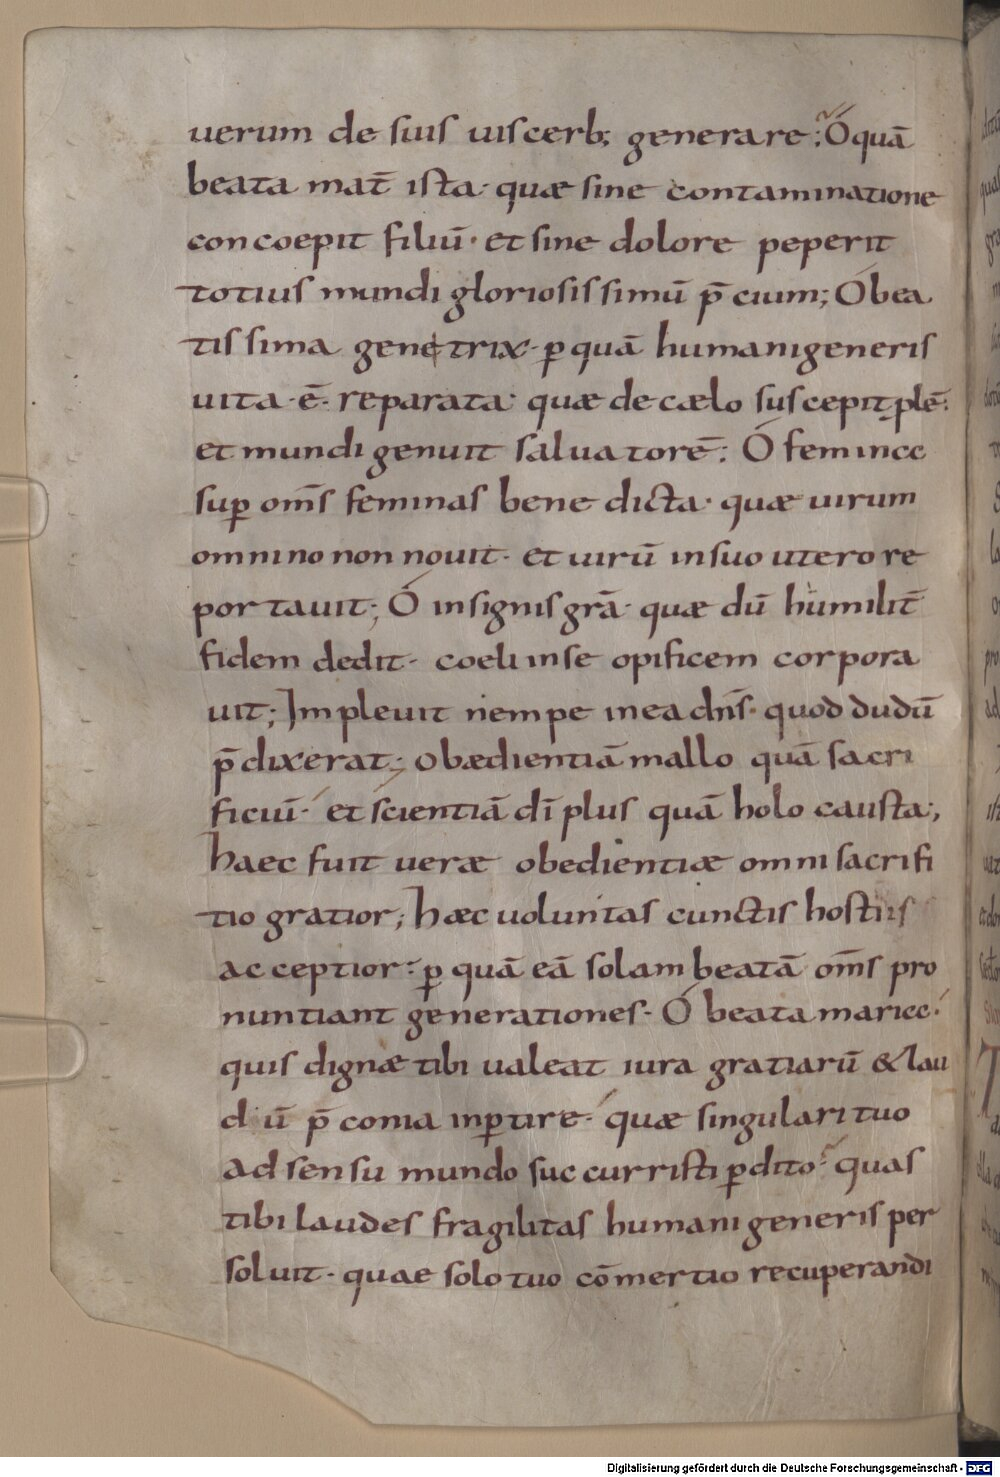 uerum de suis uiscerb; generare; Ó quā
beata mat̄ ista· quæ sine contaminatione
concoepit filiū· et sine dolore peperit
totius mundi gloriosissimū p̄cium; Ó bea
tissima genetrix· ꝑquā humani generis
uita· ē· reparata· quæ de cælo suscepit plē·
et mundi genuit saluatorē· Ó femina
suꝑ om̄s feminas benedicta· quæ uirum
omnino non nouit· et uirū in suo utero re
portauit; Ó insignis grā· quæ dū humilit̄
fidem dedit· coeli in se opificem corpora
uit; Impleuit nempe in ea dn̄s· quod dudū
p̄dixerat; obædientiā mallo quā sacri
ficiū· et scientiā dī plus quā holocausta;
haec fuit ueræ obedientiæ omni sacrifi
tio gratior; hæc uoluntas cunctis hostiis
acceptior· ꝑ quā eā solam beatā om̄s pro
nuntiant generationes· Ó beata maria·
quis dignæ tibi ualeat iura gratiarū & lau
dū p̄conia inꝑtire· quæ singulari tuo
adsensu mundo succurristi ꝑdito· quas
tibi laudes fragilitas humani generis per
soluit· quae solo tuo cōmertio recuperandi
Digitalisierung gefördert durch die Deutsche Forschungsgemeinschaft - DFG